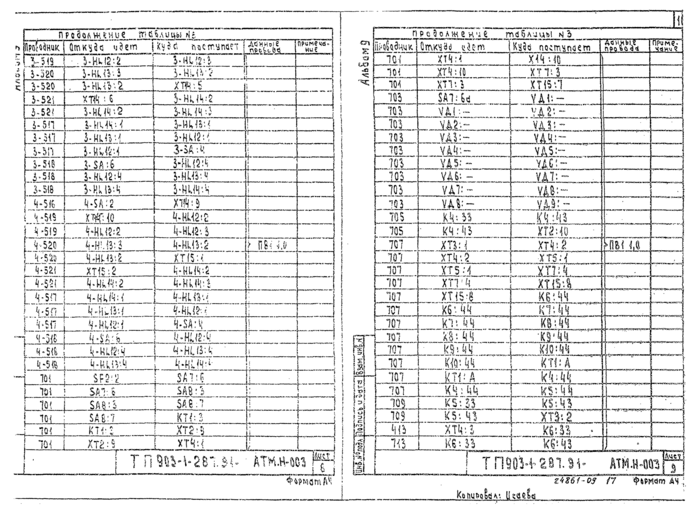 Продолжение таблицы №2
Проводник Откуда идет Куда поступает Данные провода Примечание
3-519 3-HL12:2 3-HL12:3
3-520 3-HL13:3 3-HL13:2
3-520 3-HL13:2 XT14:5
3-521 XT14:6 3-HL14:2
3-521 3-HL14:2 3-HL14:3
3-517 3-HL14:1 3-HL13:1
3-517 3-HL13:1 3-HL12:1
3-517 3-HL12:1 3-SA:4
3-518 3-SA:6 3-HL12:4
3-518 3-HL12:4 3-HL13:4
3-518 3-HL13:4 3-HL14:4
4-516 4-SA:2 XT14:9
4-519 XT14:10 4-HL12:2
4-519 4-HL12:2 4-HL12:3
4-520 4-HL13:3 4-HL13:2 ПВ1 1,0
4-520 4-HL13:2 XT15:1
4-521 XT15:2 4-HL14:2
4-521 4-HL14:2 4-HL14:3
4-517 4-HL14:1 4-HL13:1
4-517 4-HL13:1 4-HL12:1
4-517 4-HL12:1 4-SA:4
4-518 4-SA:6 4-HL12:4
4-518 4-HL12:4 4-HL13:4
4-518 4-HL13:4 4-HL14:4
701 SF2:2 SA7:6
701 SA7:6 SA8:3
701 SA8:3 SA8:7
701 SA8:7 KT1:3
701 KT1:3 XT2:9
701 XT2:9 XT4:1
ТП903-1-287.91- АТМ.Н-003 Лист 8
Формат А4
Альбом 9
Продолжение таблицы №3
Проводник Откуда идет Куда поступает Данные провода Примечание
701 XT4:1 XT4:10
701 XT4:10 XT7:3
701 XT7:3 XT15:7
703 SA7:6d VД1:—
703 VД1:— VД2:—
703 VД2:— VД3:—
703 VД3:— VД4:—
703 VД4:— VД5:—
703 VД5:— VД6:—
703 VД6:— VД7:—
703 VД7:— VД8:—
703 VД8:— VД9:—
705 K4:33 K4:43
705 K4:43 XT2:10
707 XT3:1 XT4:2 ПВ1 1,0
707 XT4:2 XT5:1
707 XT5:1 XT7:4
707 XT7:4 XT15:8
707 XT15:8 K6:44
707 K6:44 K7:44
707 K7:44 K8:44
707 K8:44 K9:44
707 K9:44 K10:44
707 K10:44 KT1:A
707 KT1:A K4:44
707 K4:44 K5:44
709 K5:33 K5:43
709 K5:43 XT3:2
713 XT4:3 K6:33
713 K6:33 K6:43
Инв.№ подл. Подпись и дата Взам.инв.№
ТП903-1-287.91- АТМ.Н-003 Лист 9
24861-09 17 Формат А4
Копировал: Исаева